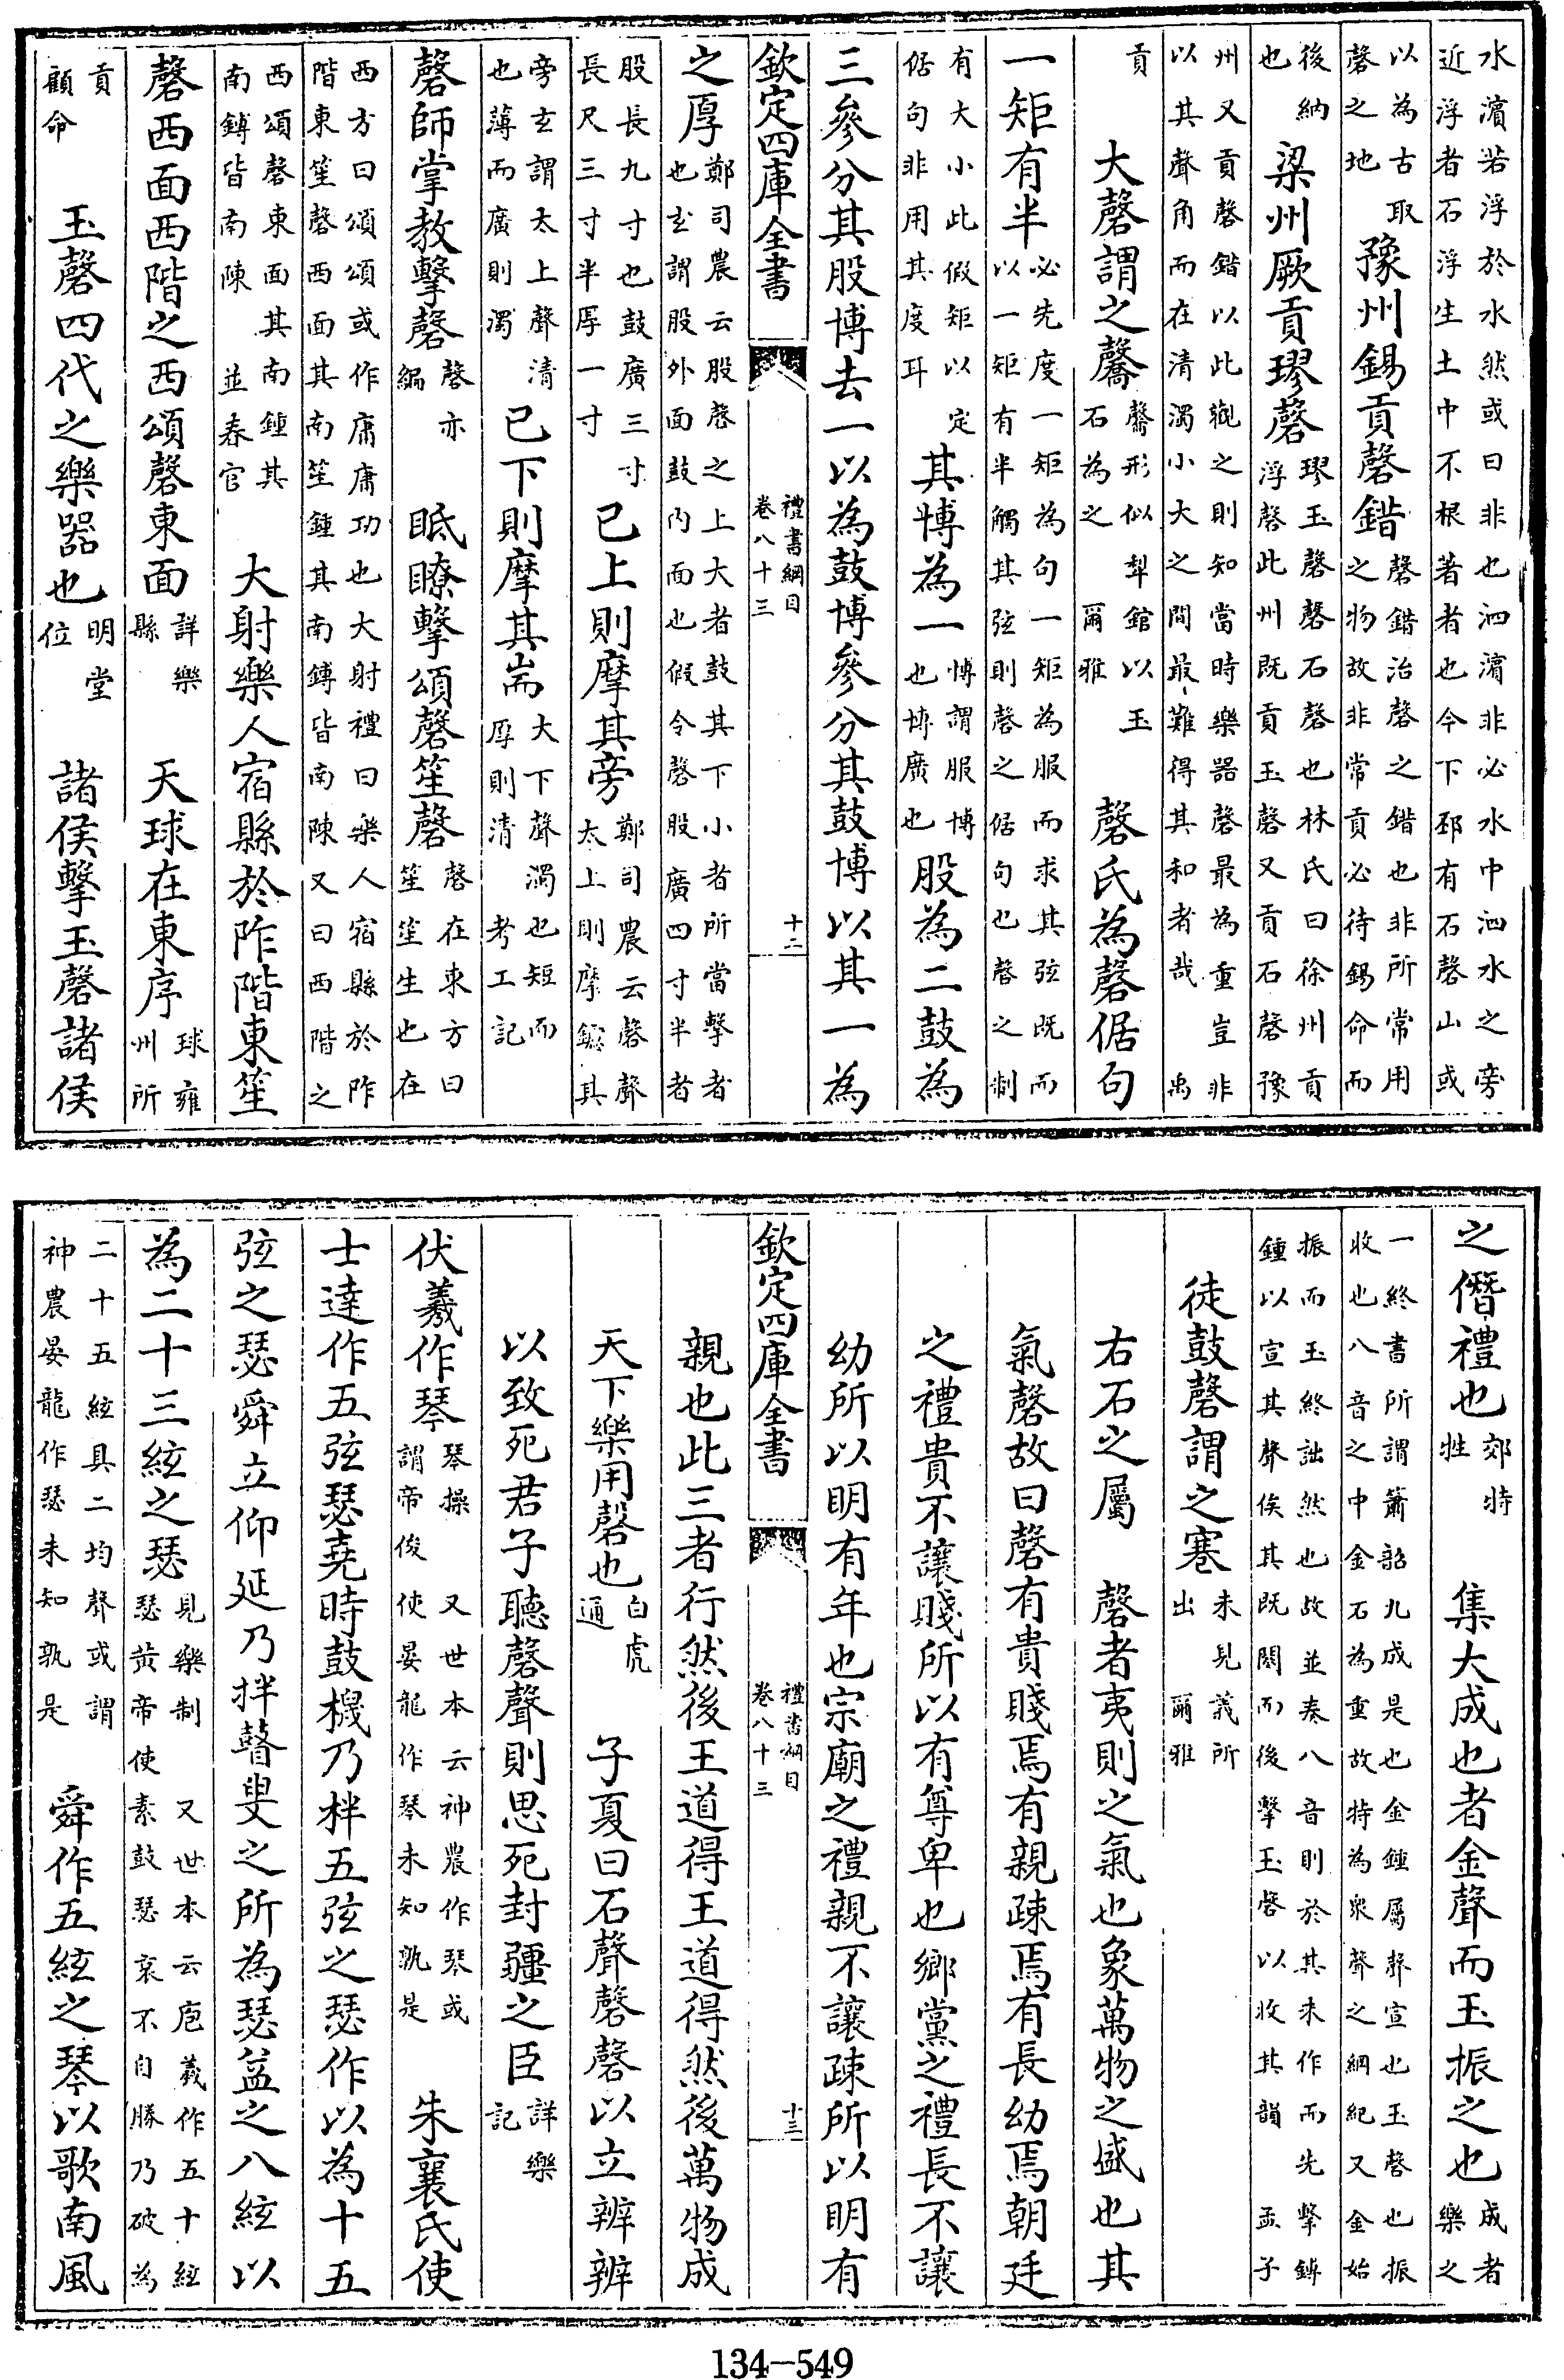 水濵若浮於水然或曰非也泗濵非必水中泗水之旁
近浮者石浮生土中不根著者也今下邳有石磬山或
以為古取磬之地豫州錫貢磬錯磬錯治磬之錯也非所常用之物故非常貢必待錫命而
後納也梁州厥貢璆磬璆玉磬磬石磬也林氏曰徐州貢浮磬此州既貢玉磬又貢石磬豫
州又貢磬錯以此觀之則知當時樂器磬最為重豈非
以其聲角而在清濁小大之間最難得其和者哉 禹
貢 大磬謂之毊毊形似犂錧以玉石為之 爾雅 磬氏為磬倨句
一矩有半必先度一矩為句一矩為服而求其弦既而以一矩有半觸其弦則磬之倨句也磬之制
有大小此假矩以定倨句非用其度耳其博為一博謂服博也博廣也股為二鼓為
三參分其股博去一以為鼓博參分其鼓博以其一為
欽定四庫全書 禮書綱目 卷八十三 十二
之厚鄭司農云股磬之上大者鼓其下小者所當擊者也玄謂股外面鼓内面也假令磬股廣四寸半者
股長九寸也鼓廣三寸長尺三寸半厚一寸已上則摩其旁鄭司農云磬聲太上則摩鑢其
旁玄謂太上聲清也薄而廣則濁已下則摩其耑大下聲濁也短而厚則清 考工記
磬師掌教擊磬磬亦編 眡瞭擊頌磬笙磬磬在東方曰笙笙生也在
西方曰頌頌或作庸庸功也大射禮曰樂人宿縣於阼
階東笙磬西面其南笙鍾其南鎛皆南陳又曰西階之
西頌磬東面其南鍾其南鎛皆南陳 並春官 大射樂人宿縣於阼階東笙
磬西面西階之西頌磬東面詳樂縣 天球在東序球雍州所
貢顧命 玉磬四代之樂器也明堂位 諸侯擊玉磬諸侯
之僭禮也郊特牲 集大成也者金聲而玉振之也成者樂之
一終書所謂簫韶九成是也金鍾屬聲宣也玉磬也振
收也八音之中金石為重故特為衆聲之綱紀又金始
振而玉終詘然也故並奏八音則於其未作而先擊鎛
鍾以宣其聲俟其既闋而後擊玉磬以收其韻 孟子
徒鼓磬謂之寋未見義所出 爾雅
右石之屬 磬者夷則之氣也象萬物之盛也其
氣磬故曰磬有貴賤焉有親疎焉有長幼焉朝廷
之禮貴不讓賤所以有尊卑也鄉黨之禮長不讓
幼所以明有年也宗廟之禮親不讓疎所以明有
欽定四庫全書 禮書綱目 卷八十三 十三
親也此三者行然後王道得王道得然後萬物成
天下樂用磬也白虎通 子夏曰石聲磬磬以立辨辨
以致死君子聽磬聲則思死封疆之臣詳樂記
伏羲作琴琴操謂帝俊使晏龍作琴又世本云神農作琴或未知孰是 朱襄氏使
士達作五弦瑟堯時鼓櫗乃柈五弦之瑟作以為十五
弦之瑟舜立仰延乃拌瞽叟之所為瑟益之八絃以
為二十三絃之瑟見樂制 又世本云庖羲作五十絃瑟黃帝使素鼓瑟哀不自勝乃破為
二十五絃具二均聲或謂神農晏龍作瑟未知孰是 舜作五絃之琴以歌南風
134-549